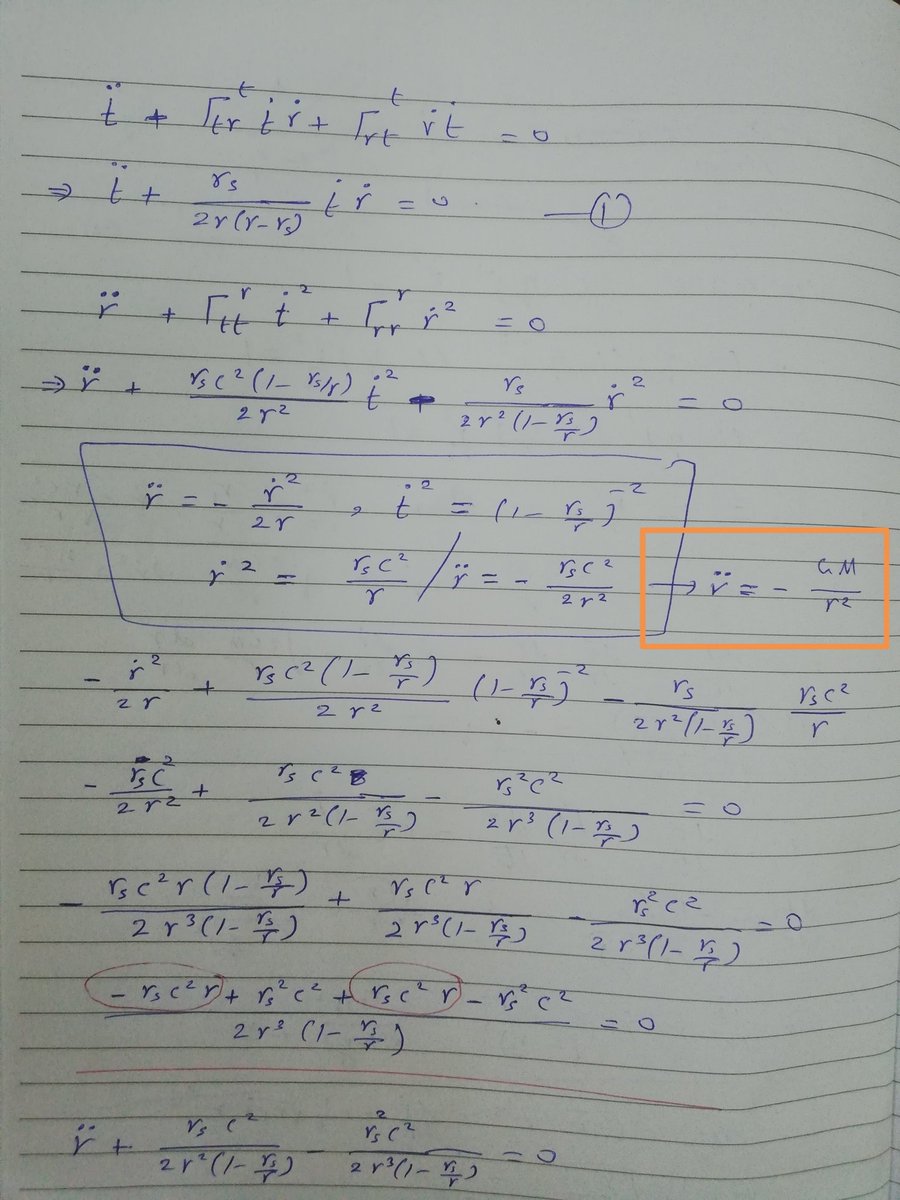 ẗ + Γ^t_tr ṫ ṙ + Γ^t_rt ṙ ṫ = 0
⇒ ẗ + r_s / 2r(r-r_s) ṫ ṙ = 0 — ①
r̈ + Γ^r_tt ṫ² + Γ^r_rr ṙ² = 0
⇒ r̈ + r_s c² (1 - r_s/r) / 2r² ṫ² - r_s / 2r² (1 - r_s/r) ṙ² = 0
r̈ = - ṙ² / 2r , ṫ² = (1 - r_s/r)⁻²
ṙ² = r_s c² / r / r̈ = - r_s c² / 2r² → r̈ = - GM / r²
- ṙ² / 2r + r_s c² (1 - r_s/r) / 2r² (1 - r_s/r)⁻² - r_s / 2r² (1 - r_s/r) r_s c² / r
- r_s c² / 2r² + r_s c² / 2r² (1 - r_s/r) - r_s² c² / 2r³ (1 - r_s/r) = 0
- r_s c² r (1 - r_s/r) / 2r³ (1 - r_s/r) + r_s c² r / 2r³ (1 - r_s/r) - r_s² c² / 2r³ (1 - r_s/r) = 0
- r_s c² r + r_s² c² + r_s c² r - r_s² c² / 2r³ (1 - r_s/r) = 0
r̈ + r_s c² / 2r² (1 - r_s/r) - r_s² c² / 2r³ (1 - r_s/r) = 0